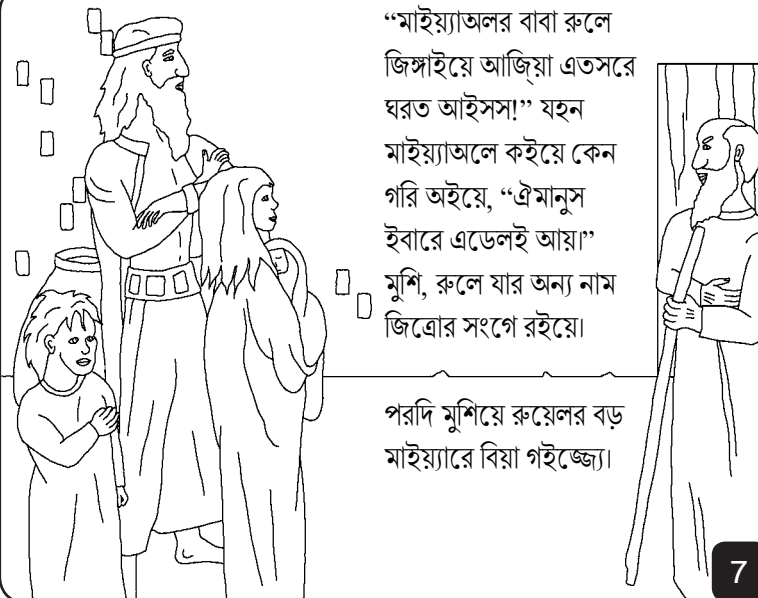 “মাইয়্যাঅলর বাবা রুলে
জিঙ্গাইয়ে আজিয়া এতসরে
ঘরত আইসস!” যহন
মাইয়্যাঅলে কইয়ে কেন
গরি অইয়ে, “ঐমানুস
ইবারে এডেলই আয়।”
মুশি, রুলে যার অন্য নাম
জিত্রোর সংগে রইয়ে।
পরদি মুশিয়ে রুয়েলর বড়
মাইয়্যারে বিয়া গইজ্জ্যে।
7